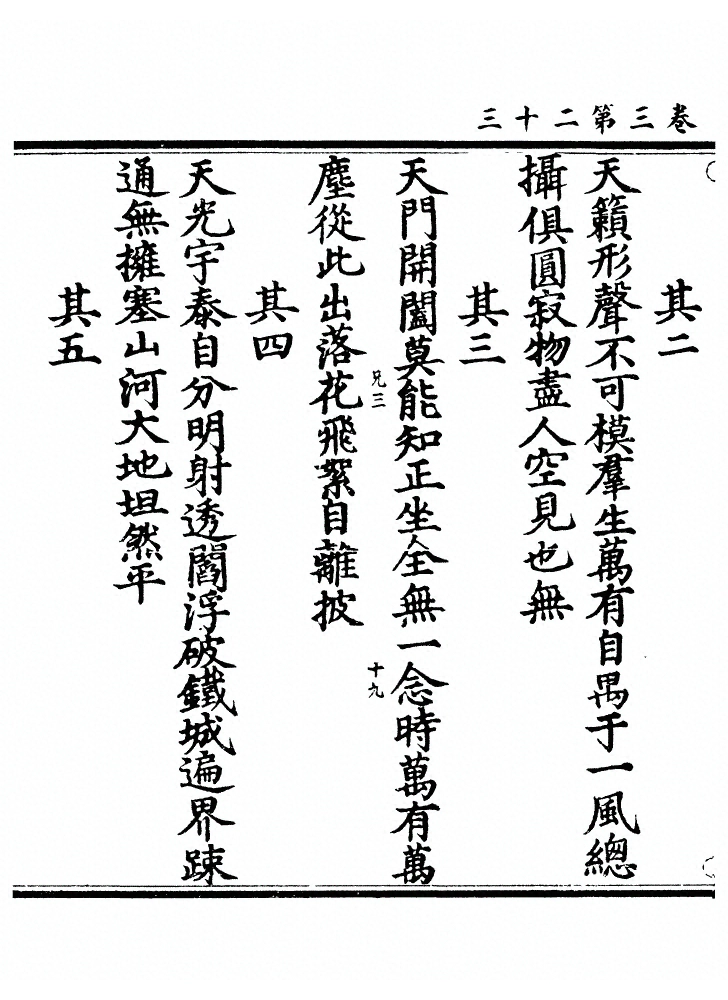 卷三第二十三
其二
天籟形聲不可模羣生萬有自喁于一風總
攝俱圓寂物盡人空見也無
其三
天門開闔莫能知正坐全無一念時萬有萬
兄三
十九
塵從此出落花飛絮自離披
其四
天光宇泰自分明射透閻浮破鐵城遍界踈
通無擁塞山河大地坦然平
其五